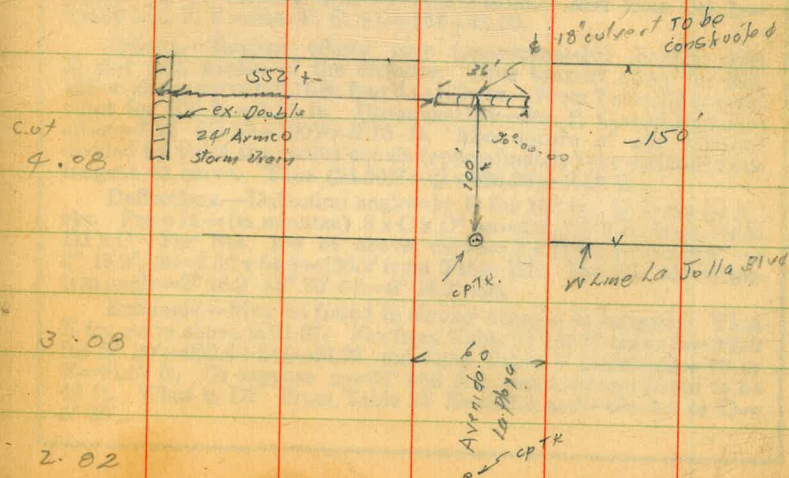 ₵ 18" culvert To be
constructed
552' +-
36'
ex. Double
24" Armco
Storm Drain
Cut
4.08
90°00.00
-150'
100'
cp TK.
W Line La Jolla Blvd
3.08
60
Avenida
La Playa
cp TK
2.02